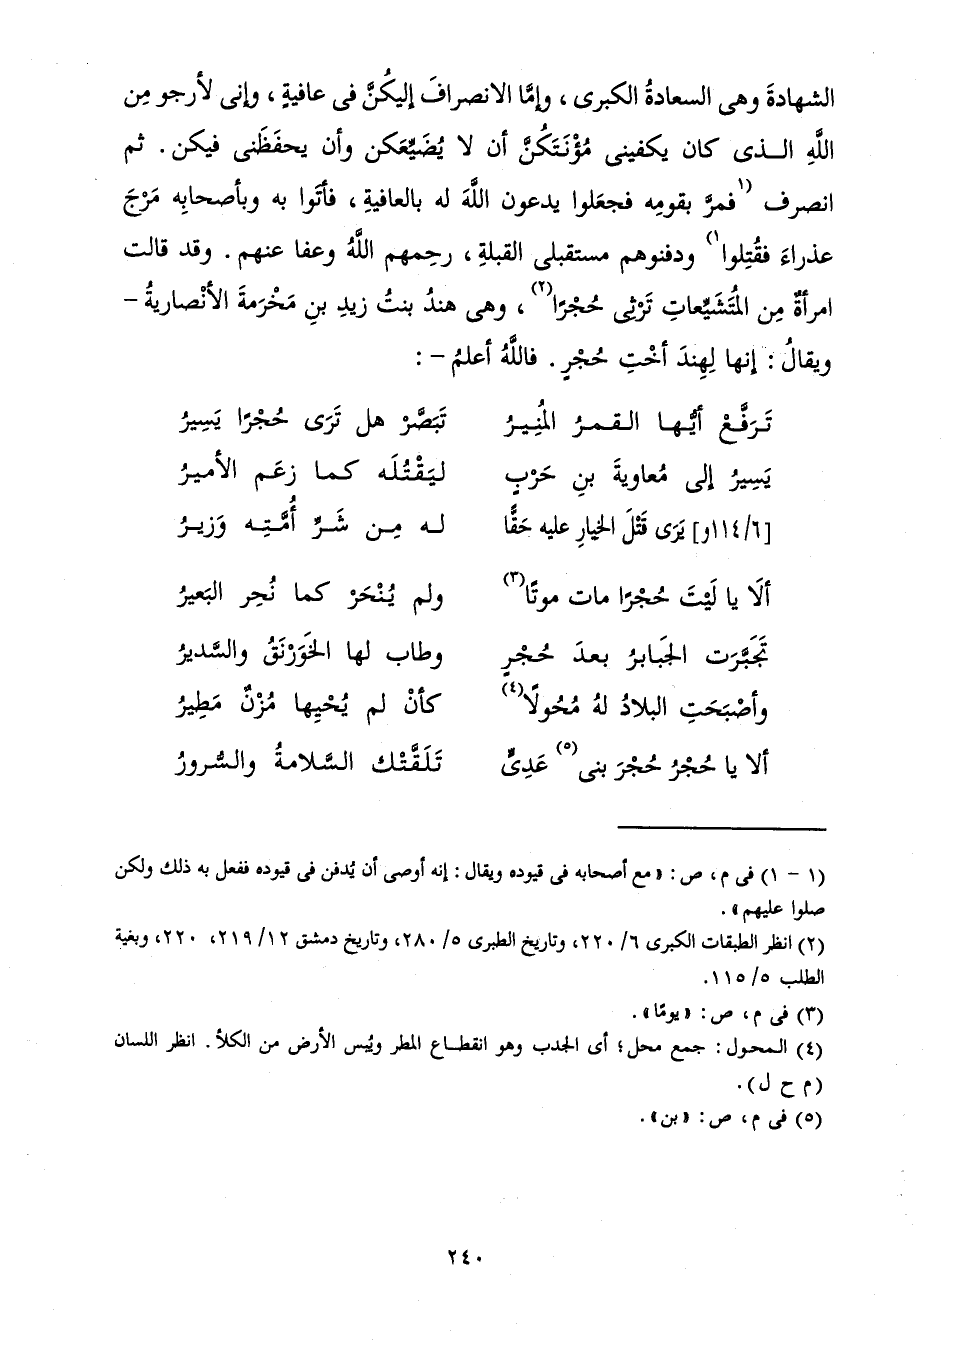 الشهادةَ وهى السعادةُ الكبرى ، وإمَّا الانصرافَ إليكُنَّ فى عافيةٍ ، وإنى لأرجو مِن
اللَّهِ الـذى كان يكفينى مُؤْنَتَكُنَّ أن لا يُضَيِّعَكن وأن يحفَظَنى فيكن . ثم
انصرف (١فمرَّ بقومِه فجعَلوا يدعون اللَّهَ له بالعافيةِ ، فأتَوا به وبأصحابِه مَرْجَ
عذراءَ فقُتِلوا١) ودفنوهم مستقبلى القبلةِ ، رحِمهم اللَّهُ وعفا عنهم . وقد قالت
امرأةٌ مِن المُتَشَيِّعاتِ تَرْثِى حُجْرًا(٢) ، وهى هندُ بنتُ زيدِ بنِ مَخْرَمةَ الأنْصاريةُ -
ويقالُ : إنها لِهِندَ أخْتِ حُجْرٍ . فاللَّهُ أعلمُ - :
تَـرَفَّـعْ أيُّـهـا الـقـمـرُ المُنِـيـرُ تَبَصَّرْ هل تَرَى حُجْرًا يَسِيرُ
يَسِيرُ إلى مُعاويةَ بنِ حَرْبٍ ليَقْتُلَه كـمـا زعَـم الأميـرُ
[١١٤/٦و] يَرَى قَتْلَ الخيارِ عليه حَقًّا لـه مِـن شَـرِّ أُمَّتِـه وَزيـرُ
ألَا يا لَيْتَ حُجْرًا مات موتًا(٣) ولم يُنْحَرْ كما نُحِر البَعيرُ
تَجَبَّرَت الجَبابرُ بعدَ حُجْرٍ وطاب لها الخَوَرْنَقُ والسَّديرُ
وأصْبَحَتِ البلادُ لهُ مُحُولًا(٤) كأنْ لم يُحْيِها مُزْنٌ مَطِيرُ
ألا يا حُجْرُ حُجْرَ بنى(٥) عَدِىٍّ تَلَقَّتْك السَّلامةُ والسُّرورُ
(١ - ١) فى م، ص : « مع أصحابه فى قيوده ويقال : إنه أوصى أن يُدفن فى قيوده ففعل به ذلك ولكن
صلوا عليهم » .
(٢) انظر الطبقات الكبرى ٦/ ٢٢٠، وتاريخ الطبرى ٥/ ٢٨٠، وتاريخ دمشق ١٢/ ٢١٩، ٢٢٠، وبغية
الطلب ٥/ ١١٥.
(٣) فى م، ص : « يومًا » .
(٤) المـحـول : جمع محل؛ أى الجدب وهو انقطـاع المطر ويُبس الأرض من الكلأ . انظر اللسان
(م ح ل).
(٥) فى م، ص : « بن » .
٢٤٠